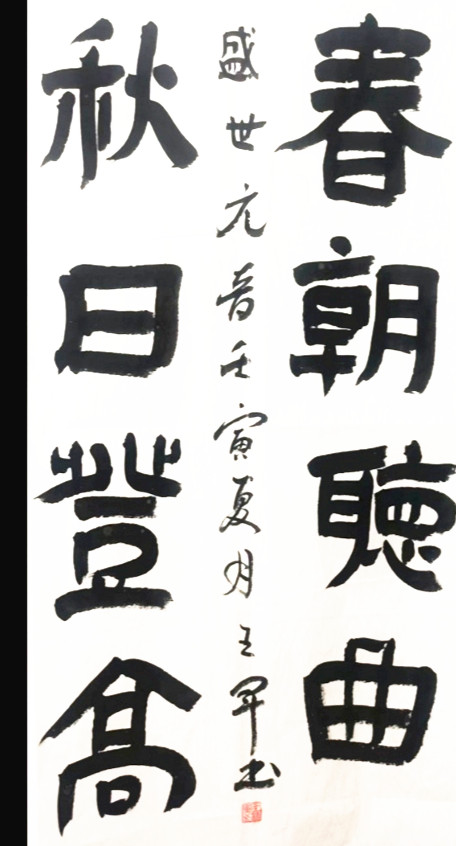 春朝聽曲
秋日登高
盛世元音壬寅夏月王軍书